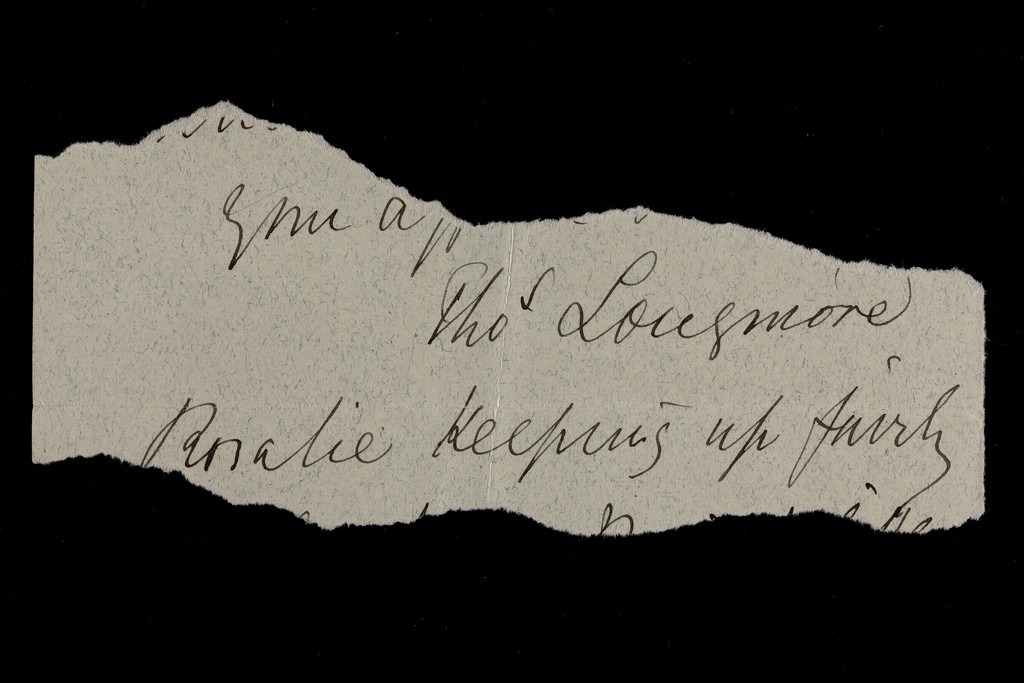 Your a
Thos Longmore
Rosalie Keeping up fairly